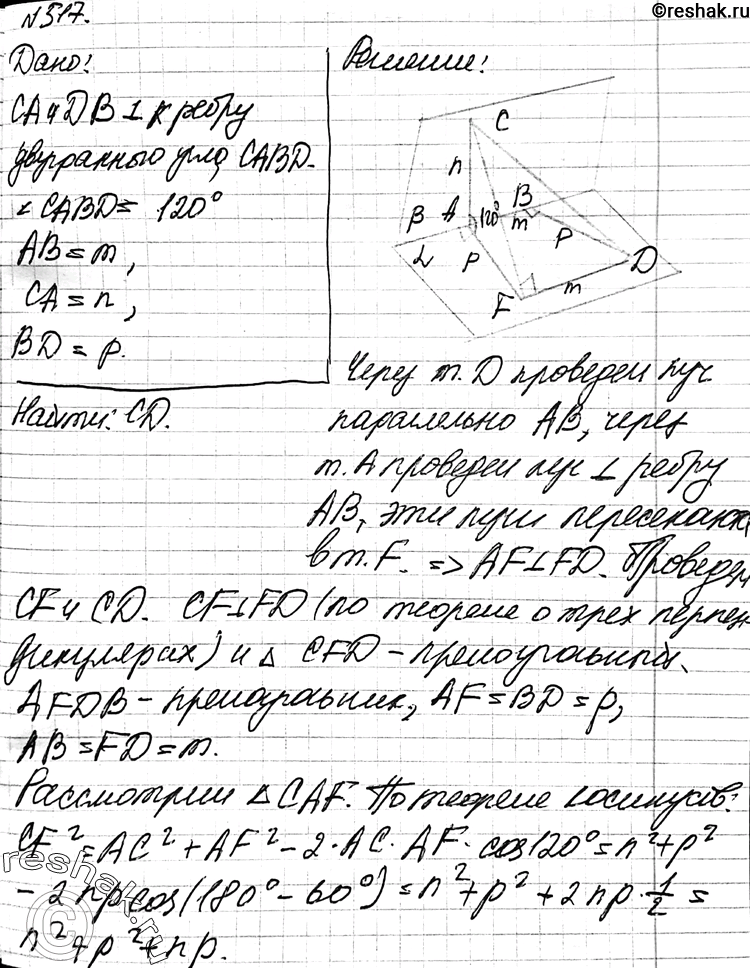 ©reshak.ru
№517.
Дано:
CA и DB ⊥ к ребру
двугранного угла CABD.
∠CABD = 120°
AB = m,
CA = n,
BD = p.
Найти: CD.
Решение:
C
n
B A 120° B
m
L p P D
F m
Через т. D проведем луч
параллельно AB, через
т. A проведем луч ⊥ ребру
AB, эти лучи пересекают
в т. F. => AF⊥FD. Проведем
CF и CD. CF⊥FD (по теореме о трех перпен-
дикулярах) и △ CFD – прямоугольный.
AFDB – прямоугольник, AF = BD = p,
AB = FD = m.
Рассмотрим △ CAF. По теореме косинусов:
CF² = AC² + AF² – 2·AC·AF·cos120° = n² + p²
– 2np cos(180° – 60°) = n² + p² + 2np·1/2 =
n² + p² + np.
reshak.ru